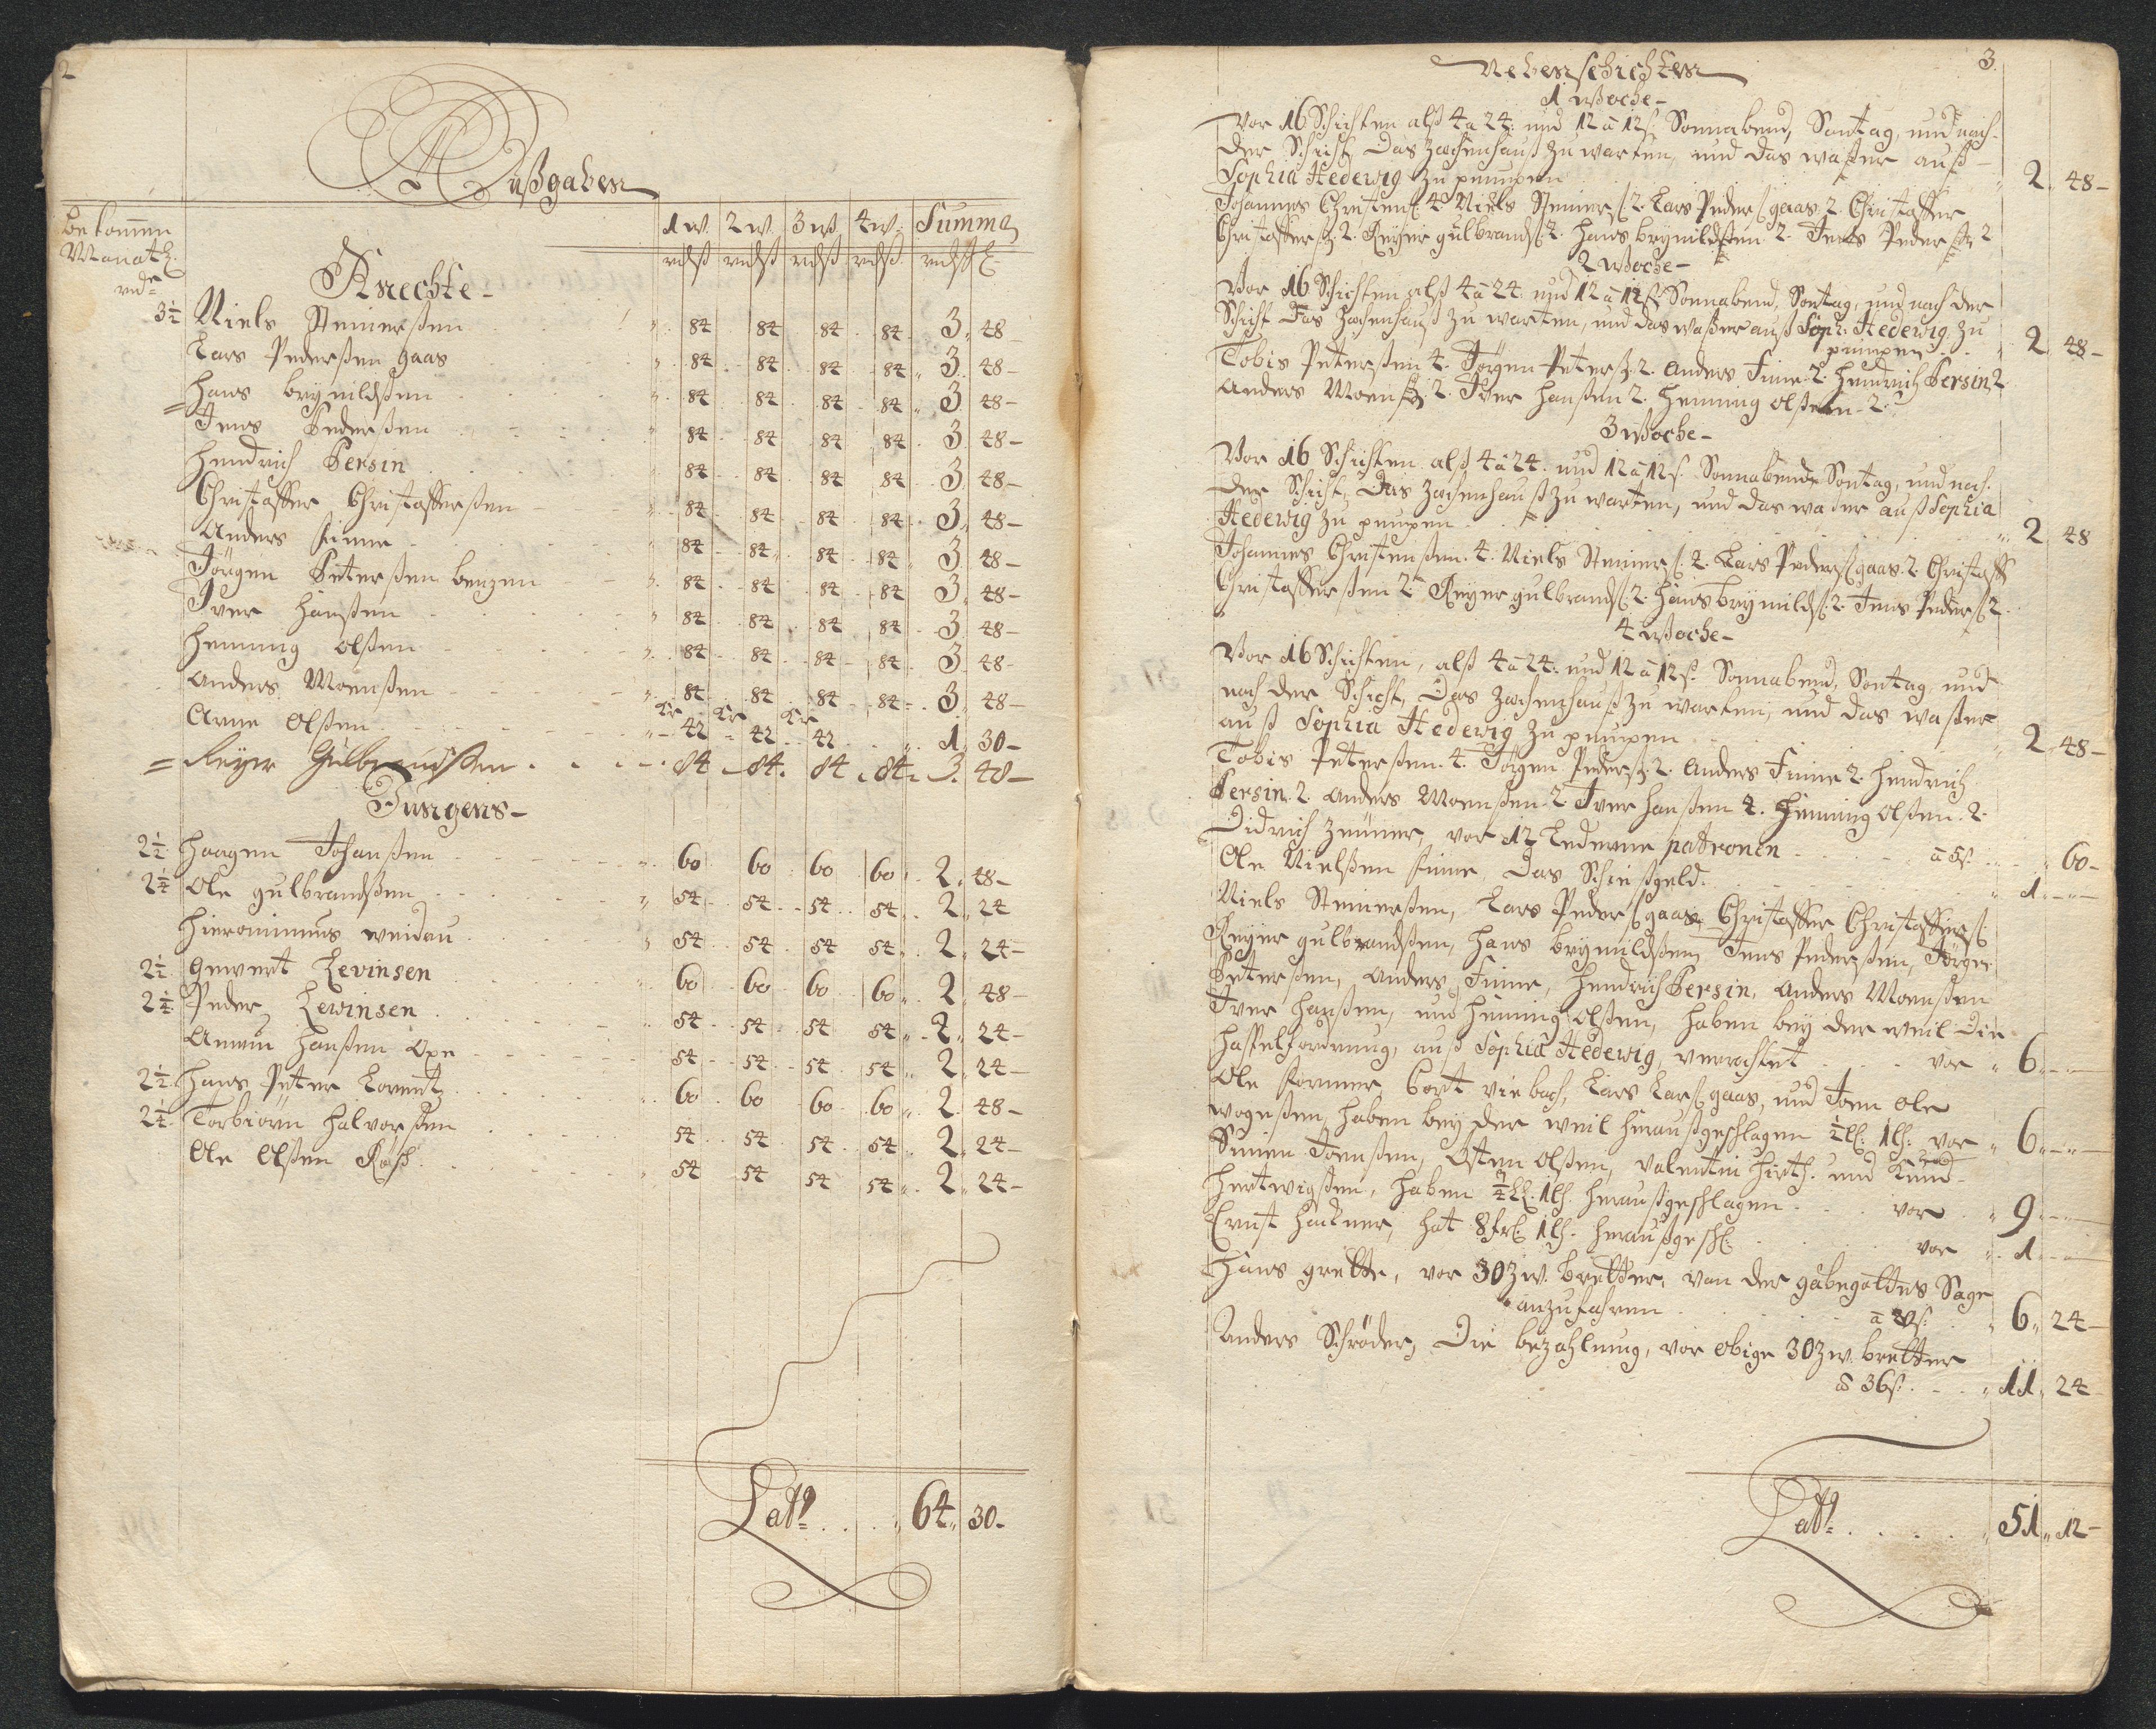 2
Außgaben
bekommen
Monatl.
rdr
1 w. 2 w. 3 w. 4 w. Summa
rdß rdß rdß rdß rdß ß
Knechte
3½ Niels Steinerßen 84 84 84 84 3 48
Lars Pederßen gaas 84 84 84 84 3 48
Hans brynildßen 84 84 84 84 3 48
Jens Pederßen 84 84 84 84 3 48
Hendrich Persin 84 84 84 84 3 48
Christoffer Christofferßen 84 84 84 84 3 48
Anders Finne 84 84 84 84 3 48
Jörgen Peterßen benzen 84 84 84 84 3 48
Iver Hanßen 84 84 84 84 3 48
Henning Olßen 84 84 84 84 3 48
Anders Moenßen 84 84 84 84 3 48
Kr Kr Kr
Arne Olßen 42 42 42 1 30
Reyer Gulbrandßen 84 84 84 84 3 48
Jungens
2½ Haagen Johanßen 60 60 60 60 2 48
2¼ Ole gulbrandßen 54 54 54 54 2 24
Hieronimus weidau 54 54 54 54 2 24
2½ Gewert Levinsen 60 60 60 60 2 48
2¼ Peder Lewinsen 54 54 54 54 2 24
Amun Hanßen Oxe 54 54 54 54 2 24
2½ Hans Peter Lorentz 60 60 60 60 2 48
2¼ Torbiörn Halvorßen 54 54 54 54 2 24
Ole Olßen Røß 54 54 54 54 2 24
Lat: 64 30
3
Nebenschichten
1 Woche
Vor 16 Schichten alß 4 a 24: und 12 a 12 ß. Sonnabend, Sontag, und nach
der Schicht, Das Zechenhauß zu warten, und das waßer auß
Sophia Hedewig zu pumpen 2 48
Johannes Christenß 4 Niels Steinerß 2. Lars Pederß gaas 2. Christoffer
Christofferß 2. Reyer gulbrandß 2. Hans brynildßen 2. Jens Pederß 2
2 Woche
Vor 16 Schichten alß 4 a 24. und 12 a 12 ß Sonnabend, Sontag, und nach der
Schicht Das Zechenhauß zu warten, und das waßer auß Soph: Hedewig zu
pumpen 2 48
Tobis Peterßen 4. Jörgen Peterß 2. Anders Finne 2. Hendrich Persin 2
Anders Moenß 2. Iver Hanßen 2. Henning Olßen 2.
3 Woche
Vor 16 Schichten alß 4 a 24. und 12 a 12 ß. Sonnabend, Sontag, und nach
der Schicht, Das Zechenhauß zu warten, und das waßer auß Sophia
Hedewig zu pumpen 2 48
Johannes Christenßen 4. Niels Steinerß 2. Lars Pederß gaas 2. Christoff
Christofferßen 2 Reyer gulbrandß 2. Hans brynildß 2. Jens Pederß 2.
4 Woche
Vor 16 Schichten, alß 4 a 24. und 12 a 12 ß. Sonnabend, Sontag, und
nach der Schicht, Das Zechenhauß zu warten, und das waßer
auß Sophia Hedewig zu pumpen 2 48
Tobis Peterßen 4. Jörgen Pederß 2. Anders Finne 2. Hendrich
Persin 2. Anders Moenßen 2 Iver Hanßen 2. Henning Olßen 2.
Didrich Zeuner, vor 12 Lederne patronen a 5 ß. 60
Ole Nielßen Finne, Das Schießgeld 1
Niels Steinerßen, Lars Pederß gaas, Christoffer Christofferß
Reyer gulbrandßen, Hans brynildßen, Jens Pederßen, Jörgen
Peterßen, Anders Finne, Hendrich Persin, Anders Moenßen
Iver Hanßen, und Henning Olßen, haben bey der weil Die
Haspelförderung, auß Sophia Hedewig, verrichtet vor 6
Ole Kormer Cort viebach, Lars Larß gaas, und Joen Ole
haben bey der weil heraußgeschlagen ½ ll: 1 lß: vor 6
Simen Joenßen, Osten Olßen, Valentin Hirth. und Knud
Hertwigßen, haben ¾ ll. 1 lß. heraußgeschlagen vor 9
Ernst Hackner, hat 8 frl. 1 lß. heraußgeschl: vor 1
Hans grette, vor 30 Zw. bretter, von der gabegottes Sage
anzufahren a 20 ß. 6 24
Anders Schröder, Die bezahlung, vor obige 30 Zw. bretter
a 36 ß. 11 24
Lat: 51 12